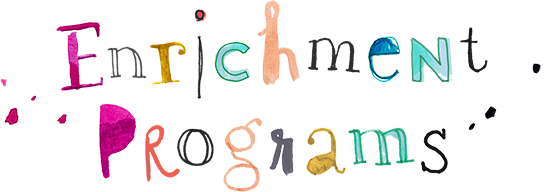 Enrichment
Programs